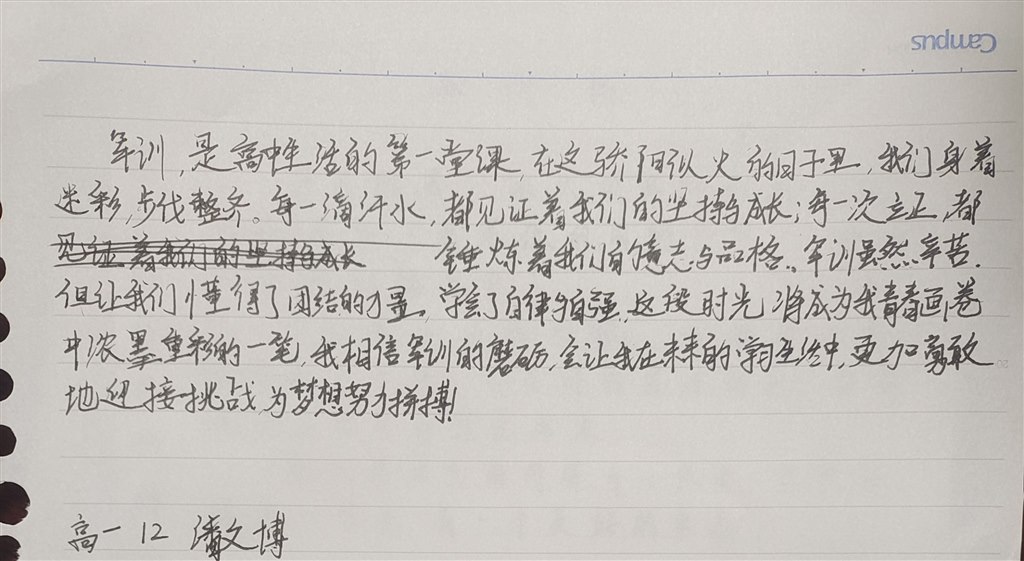 Campus
军训,是高中生活的第一堂课,在这骄阳似火的日子里,我们身着
迷彩,步伐整齐。每一滴汗水,都见证着我们的坚持与成长;每一次立正,都
见证着我们的坚持与成长 锤炼着我们的意志与品格。军训虽然辛苦,
但让我们懂得了团结的力量,学会了自律与自强,这段时光将成为我青春画卷
中浓墨重彩的一笔,我相信军训的磨砺,会让我在未来的学习生活中,更加勇敢
地迎接挑战,为梦想努力拼搏!
高一 12 潘文博